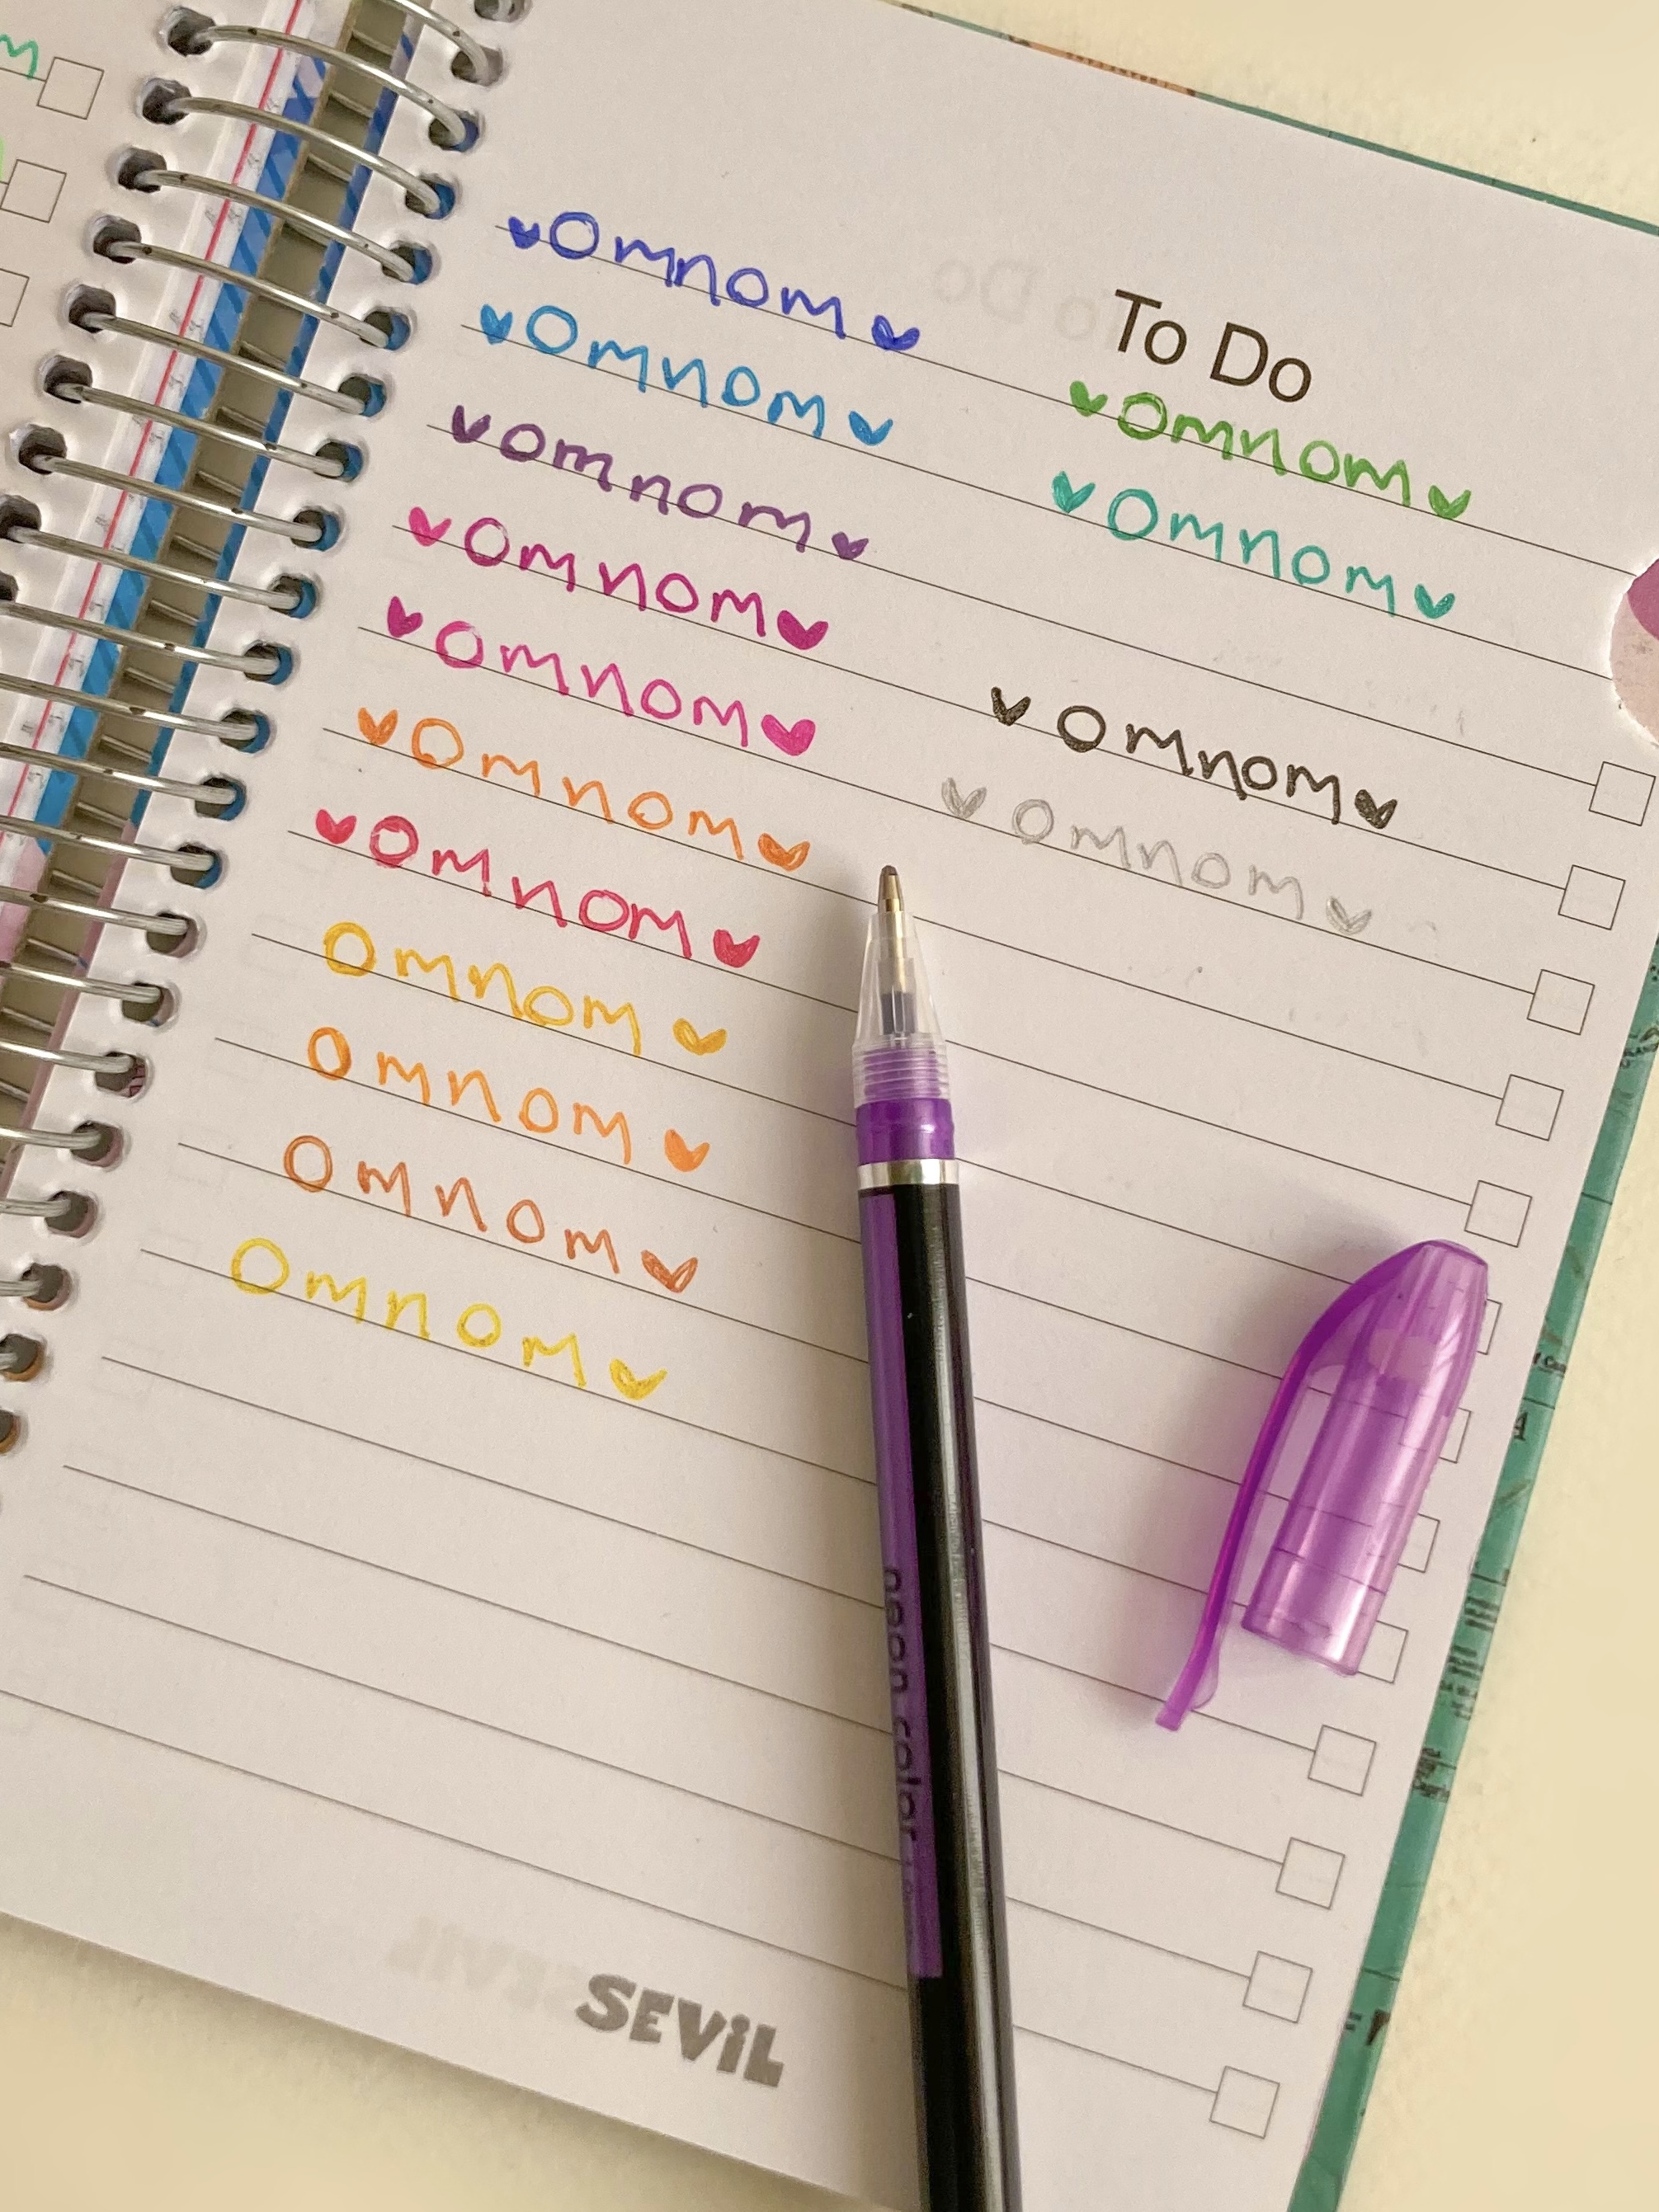 To Do
♥Omnom♥
♥Omnom♥
♥Omnom♥
♥Omnom♥
♥Omnom♥
♥Omnom♥
♥Omnom♥
Omnom♥
Omnom♥
Omnom♥
Omnom♥
♥Omnom♥
♥Omnom♥
♥Omnom♥
♥Omnom♥
neon color
SEViL